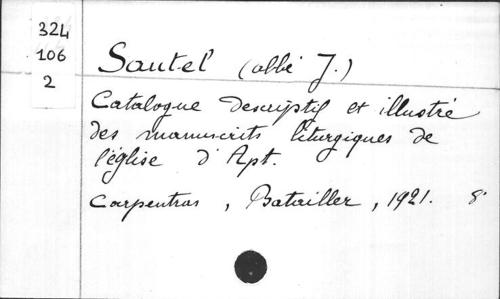 324
106
2
Sautel (abbé J.)
Catalogue descriptif et illustré
des manuscrits liturgiques de
l'église d'Apt.
Carpentras, Batailler, 1921. 8°